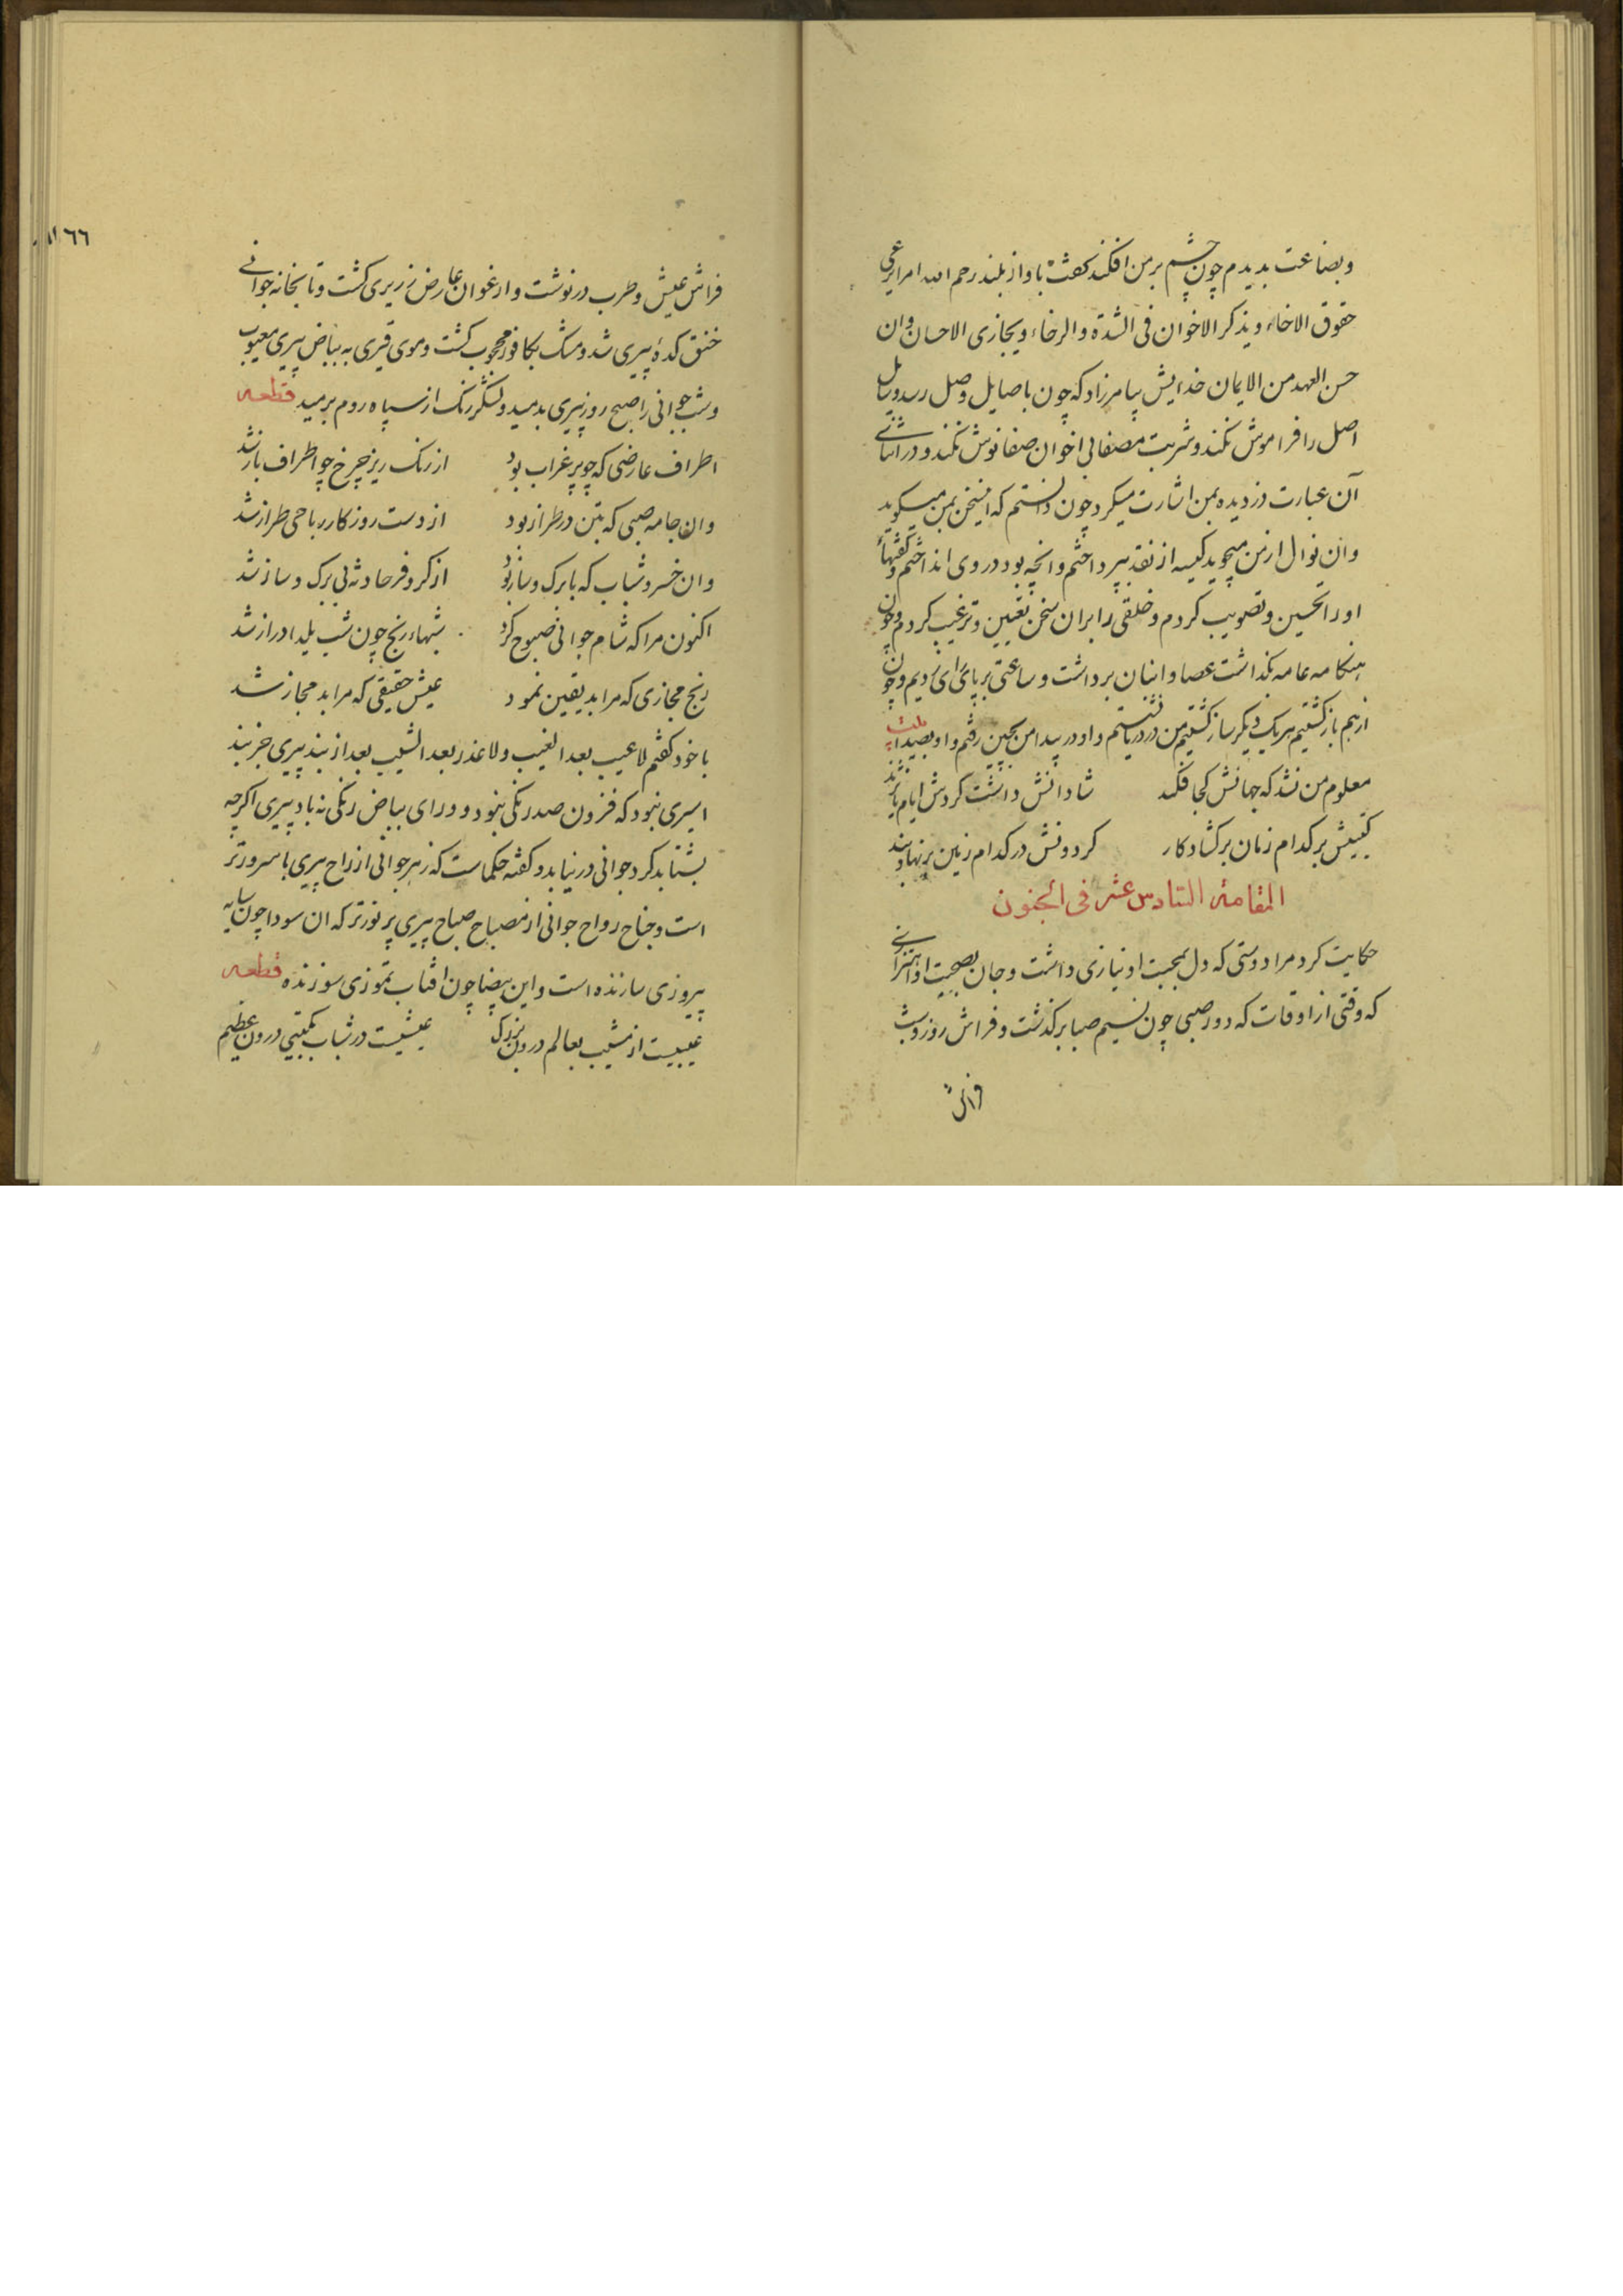 وبضاعت بدیدم چون چشم بر من افکند کفت باواز بلند رحم الله امرا یرعی
حقوق الاخاء ویذکر الاخوان فی الشدة والرخاء ویجازی الاحسان وان
حسن العهد من الایمان خدایش بیامرزاد که چون باصایل وصل رسد وسایل
اصل را فراموش نکند وشربت مصفا بی اخوان صفا نوش نکند ودر اثنای
آن عبارت دزدیده بمن اشارت میکرد چون دانستم که اینسخن بمن میکوید
وان نوال از من میجوید کیسه از نقد بپرداختم وانچه بود در وی انداختم وکفتهاء
او را تحسین وتصویب کردم وخلقی را بران سخن تعیین وترغیب کردم وچون
هنکامه عامه بکذاشت عصا وانبان برداشت وساعتی بر پای رای زدیم وچون
از هم باز کشتیم هر یک دیکر ساز کشتیم من در دریا نشستم واو در بیدا من بچین رفتم واو بصیدا بیت
معلوم من نشد که جهانش کجا فکند    شادانش داشت کردش ایام یا نژند
کیتیش بر کدام زمان بر کشاد کار    کردونش در کدام زمین بر نهاد بند
المقامة السادس عشر فی الجنون
حکایت کرد مرا دوستی که دل بمحبت او نیازی داشت وجان بصحبت او اهتزازی
که وقتی از اوقات که دور صبی چون نسیم صبا بر کذشت وفراش روز وشب
فراش
٦٦
فراش عیش وطرب در نوشت وارغوان عارض زریری کشت وتابخانه جوانی
خنق کدۀ پیری شد ومشک بکافور محجوب کشت وموی قیری به بیاض پیری معیوب
وشب جوانی را صبح روز پیری بدمید ولشکر زنک از سپاه روم برمید قطعه
اطراف عارضی که چو پر غراب بود    از رنک ریز چرخ چو اطراف باز شد
وان جامه صبی که بتن در طراز بود    از دست روزکار رباحی طراز شد
وان خسرو شباب که با برک وساز بود    از کر وفر حادثه بی برک وساز شد
اکنون مرا که شام جوانی صبوح کرد    شبهاء رنج چون شب یلدا دراز شد
رنج مجازی که مرا بد یقین نمود    عیش حقیقی که مرا بد مجاز شد
با خود کفتم لا عیب بعد الغیب ولا عذر بعد الشیب بعد از بند پیری جز بند
اسیری نبود که فزون صد رنکی نبود وورای بیاض رنکی نه باد پیری اکرچه
بشتابد کرد جوانی در نیابد وکفته حکماست که زهر جوانی از راح پیری با سرورتر
است وجناح رواح جوانی از مصباح صباح پیری پر نورتر که ان سودا چون سایه
پیروزی سازنده است واین بیضا چون افتاب تموزی سوزنده قطعه
عیبیست از مشیب بعالم درون بزرک    عیشیست در شباب بکیتی درون عظیم